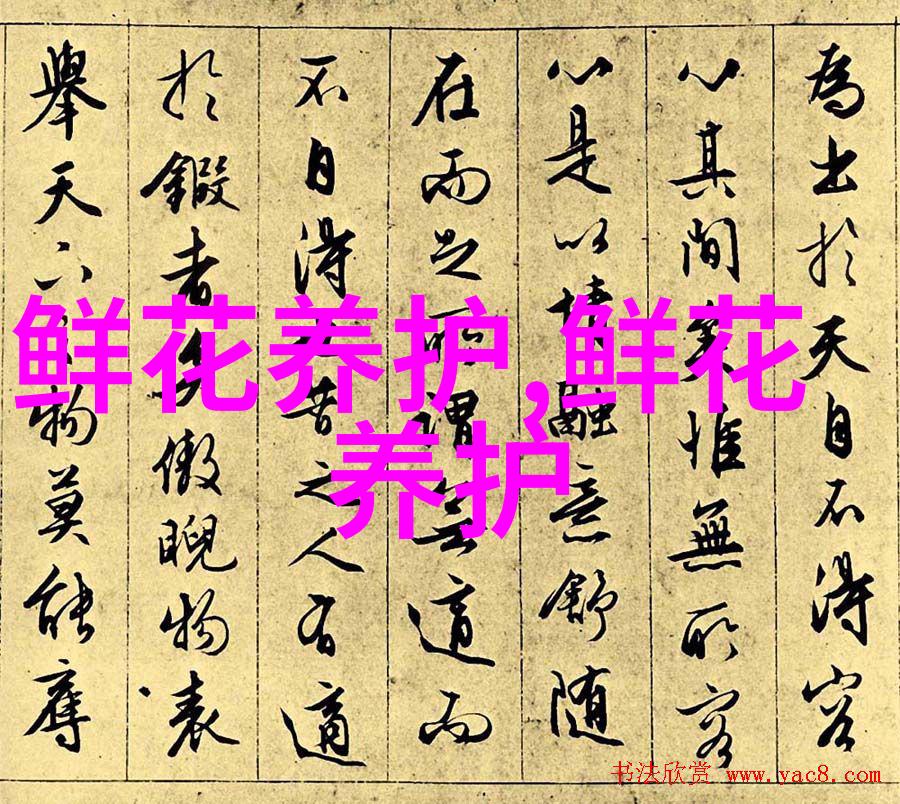 為出於天自不得容
心其間矣惟無所容
心是以情融意舒随
在而之所謂無適而
不自得也昔之人有適
於鍜者矣傲睨物表
舉天下之物莫能奪
鲜花养护,鲜花
养护
书法欣赏 www.yac8.com